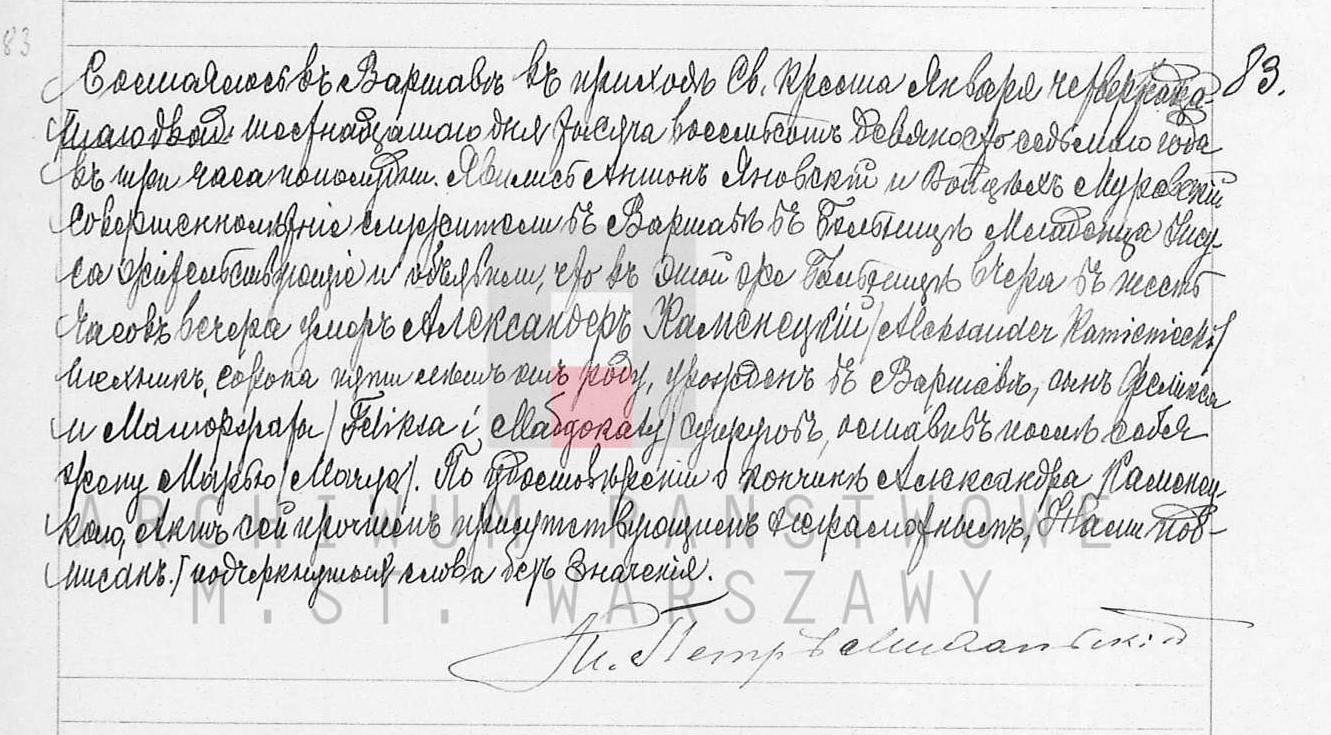 83
Состоялось въ Варшавѣ въ приходѣ Св. Креста Января 83.
шестнадцатаго дня тысяча восемьсотъ девяносто седьмаго года
въ три часа пополудни. Явились Антонъ Яновскій и Войцѣхъ Муровскій
совершеннолѣтніе служители въ Варшавѣ въ Больницѣ Младенца Іису-
са жительствующіе и объявили, что въ этой же Больницѣ вчера въ шесть
часовъ вечера умеръ Александеръ Каменецкій /Aleksander Kamieniecki/
сорока пяти лѣтъ отъ роду, урожденъ въ Варшавѣ, сынъ Феликса
и /Feliksa i супруговъ, оставивъ послѣ себя
жену Марью. По удостовѣреніи о кончинѣ Александра Каменец-
каго, Актъ сей прочтенъ присутствующимъ неграмотнымъ, Нами под-
писанъ. / подчеркнутыя слова безъ значенія.
ARCHIWUM PAŃSTWOWE
M.ST. WARSZAWY
Петръ